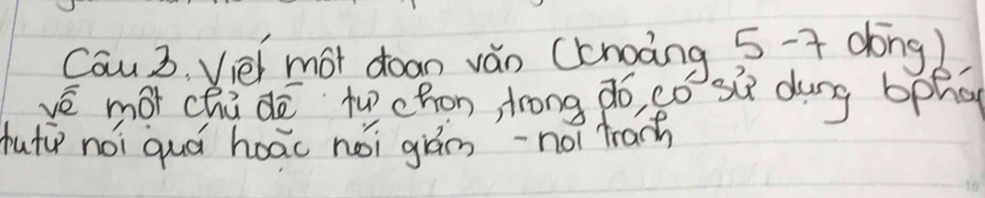 Câu 3. Viết một đoạn văn (khoảng 5-7 dòng)
về một chủ đề tự chọn, trong đó, có sử dụng bpháp
tu từ nói quá hoặc nói giảm - nói tránh